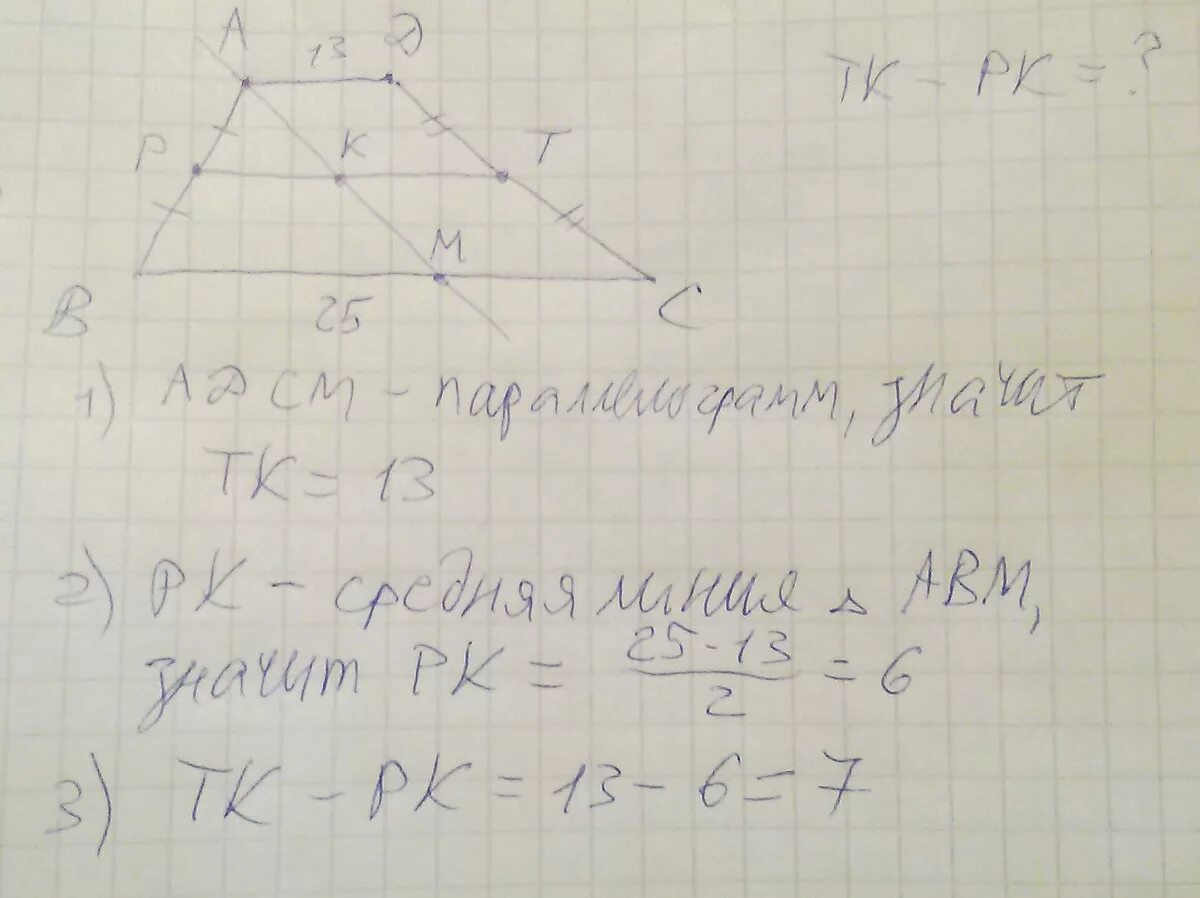 A 13 D
TK - PK = ?
P K T
M
B 25 C
1) ADCM - параллелограмм, значит
TK = 13
2) PK - средняя линия △ ABM,
значит PK = (25 - 13)/2 = 6
3) TK - PK = 13 - 6 = 7